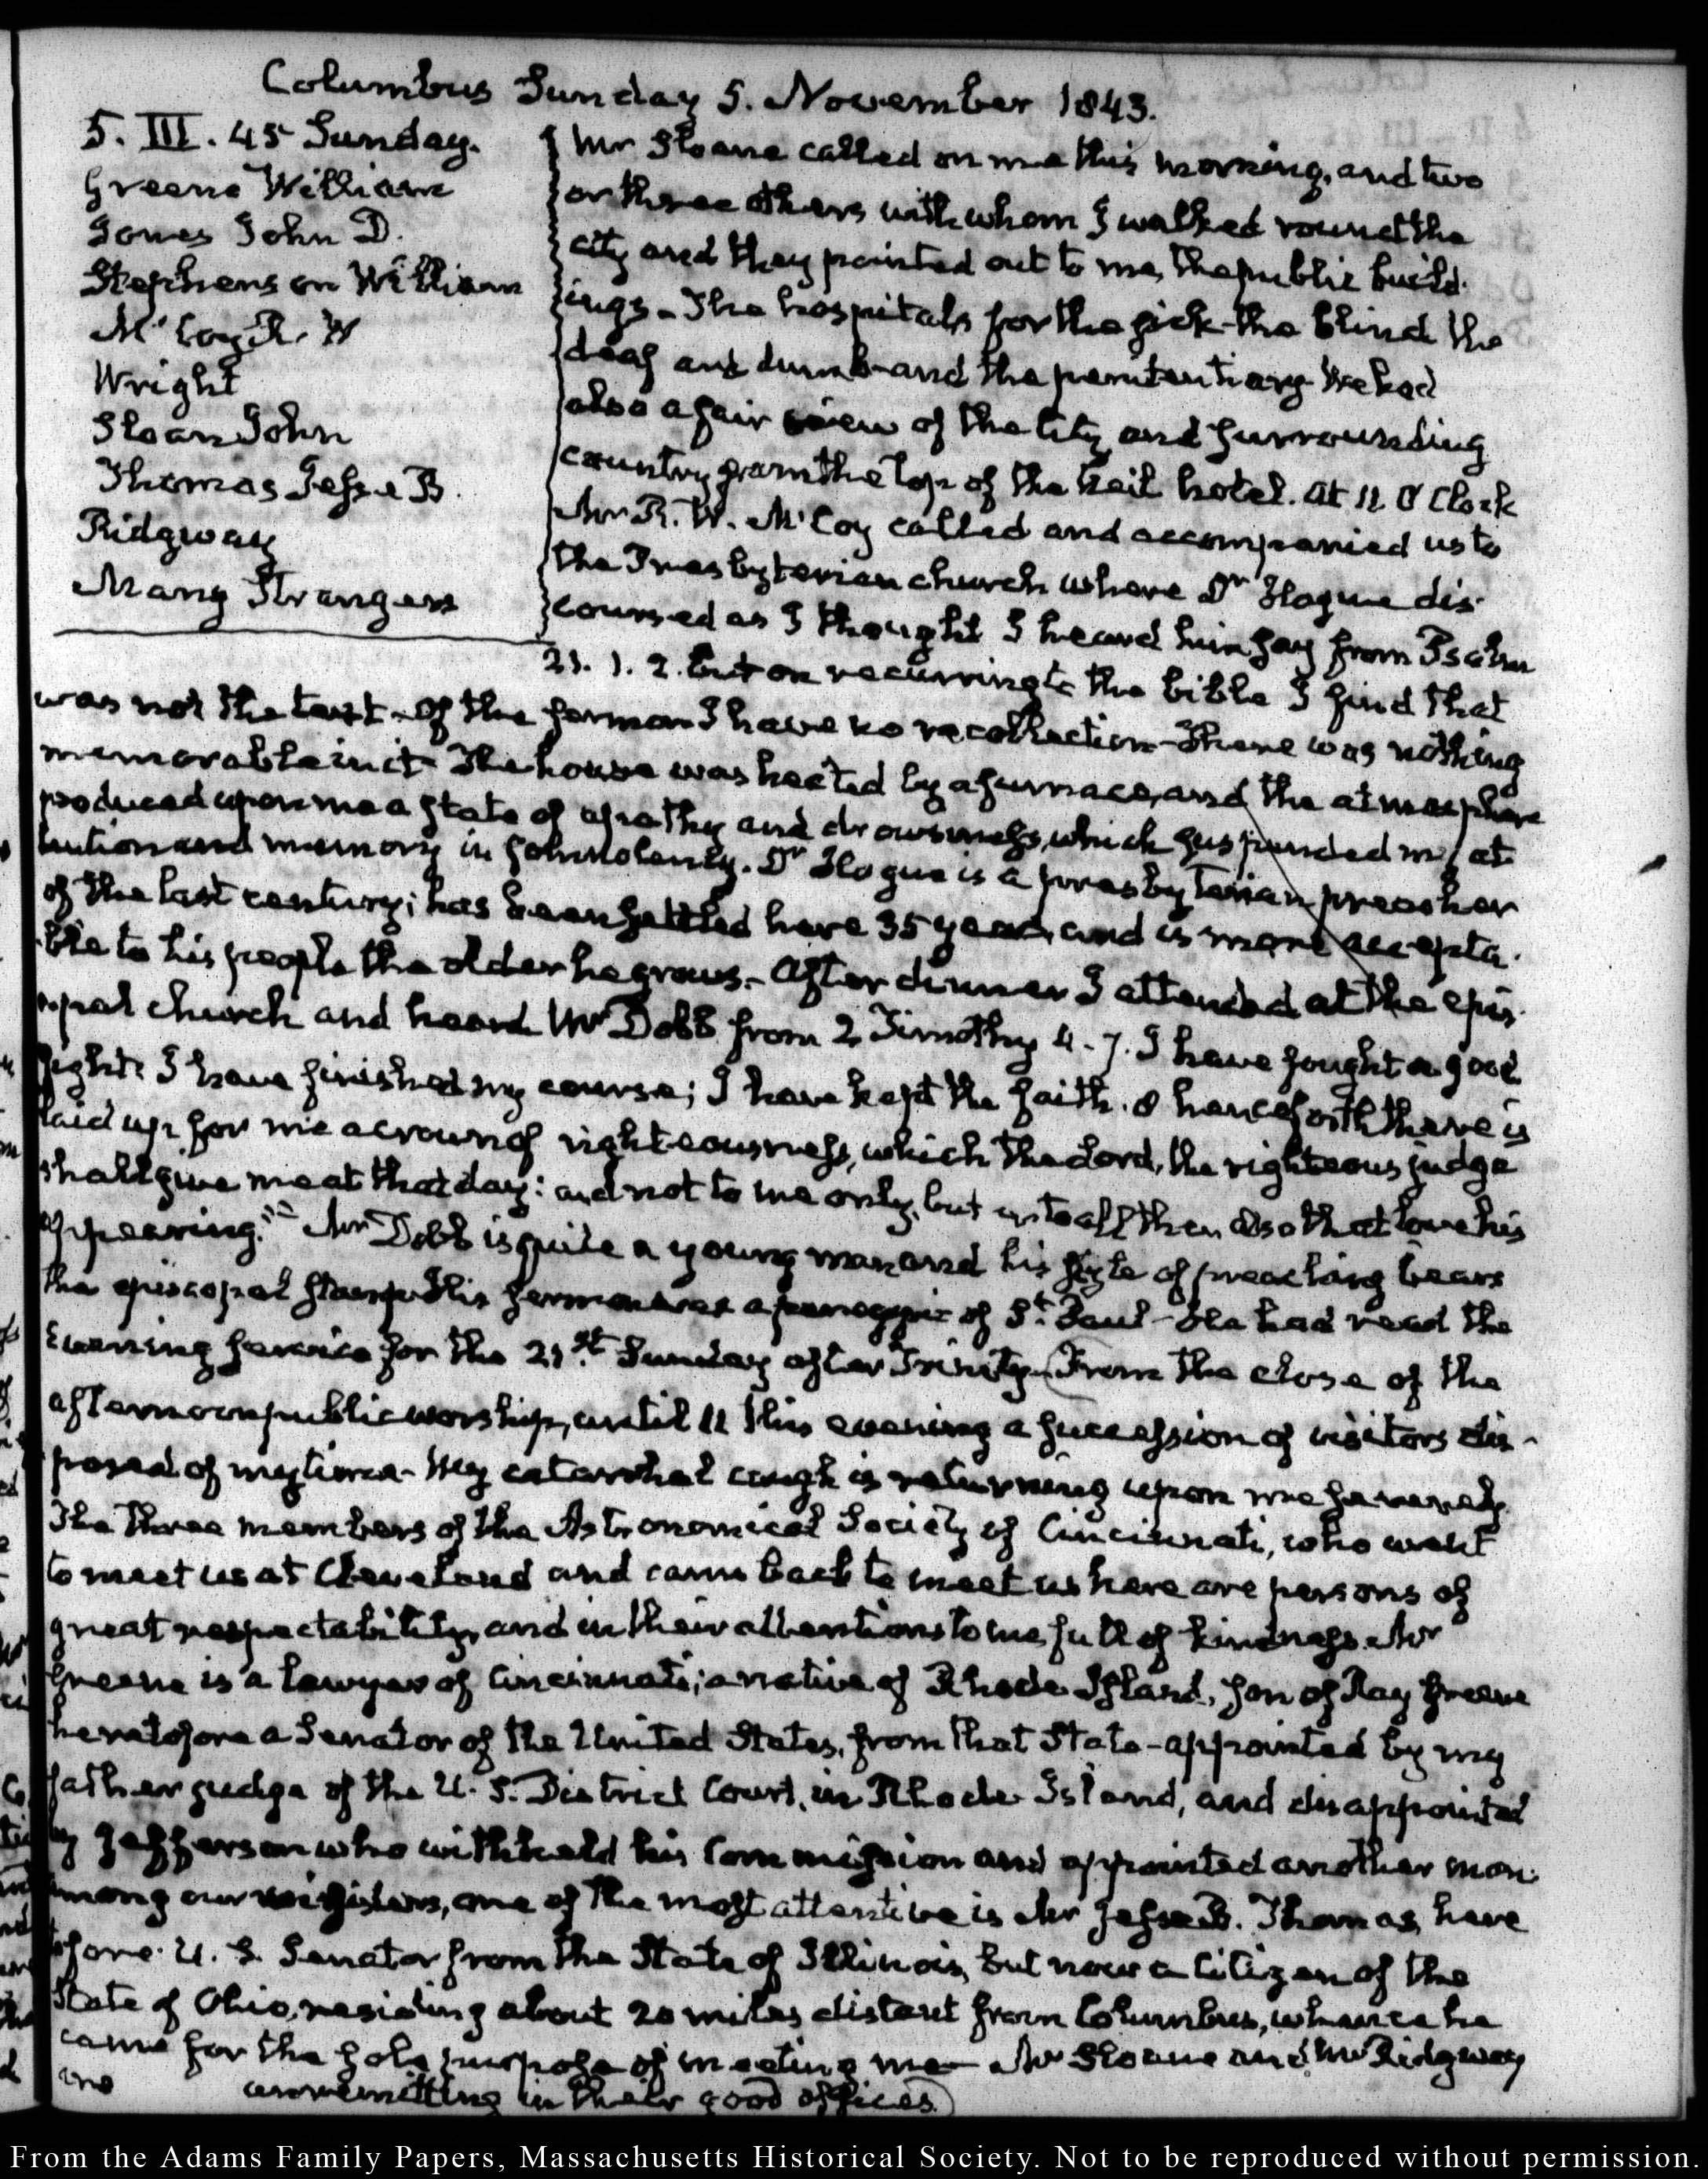 Columbus Sunday 5. November 1843.
5. III. 45 Sunday.
Greene William
Jones John D.
Stephenson William
McCoy R. W
Wright
Sloan John
Thomas Jesse B.
Ridgway
Many Strangers
Mr Sloane called on me this morning, and two
or three others with whom I walked round the
city and they pointed out to me, the public build-
ings - The hospitals for the sick - the blind the
deaf and dumb - and the penitentiary - We had
also a fair view of the City and surrounding
country from the top of the Neil hotel. At 11. O'Clock
Mr R. W. McCoy called and accompanied us to
the Presbyterian church where Dr Hogue dis-
coursed as I thought I heard him say from Psalm
21. 1. 2. but on recurring to the bible I find that
was not the text - Of the sermon I have no recollection - There was nothing
memorable in it - The house was heated by a furnace, and the atmosphere
produced upon me a state of apathy and drowsiness, which suspended my at-
tention and memory in somnolency. Dr Hogue is a presbyterian preacher
of the last century; has been settled here 35 years, and is more accepta-
ble to his people the older he grows. - After dinner I attended at the epis-
copal church and heard Mr Dobb from 2 Timothy 4. 7. I have fought a good
fight I have finished my course; I have kept the faith. 8 henceforth there is
laid up for me a crown of righteousness, which the Lord, the righteous judge
shall give me at that day: and not to me only, but unto all them also that love his
appearing." Mr Dobb is quite a young man and his style of preaching bears
the episcopal stamp His sermon was a panegyric of St. Paul - He had read the
Evening service for the 21st. Sunday after Trinity - From the close of the
afternoon public worship, until 11 this evening a succession of visitors dis-
posed of my time - My catarrhal cough is returning upon me severely.
The three members of the Astronomical Society of Cincinnati, who went
to meet us at Cleveland and came back to meet us here are persons of
great respectability, and in their attentions to me, full of kindness. Mr
Greene is a lawyer of Cincinnati; a native of Rhode Island, son of Ray Greene
heretofore a Senator of the United States, from that State - appointed by my
father judge of the U. S. District Court, in Rhode Island, and disappointed
by Jefferson who withheld his Commission and appointed another man.
Among our visitors, one of the most attentive is Mr Jesse B. Thomas, here-
tofore U. S. Senator from the State of Illinois, but now a Citizen of the
State of Ohio, residing about 20 miles distant from Columbus, whence he
came for the sole purpose of meeting me - Mr Sloane and Mr Ridgway
are unremitting in their good offices.
From the Adams Family Papers, Massachusetts Historical Society. Not to be reproduced without permission.